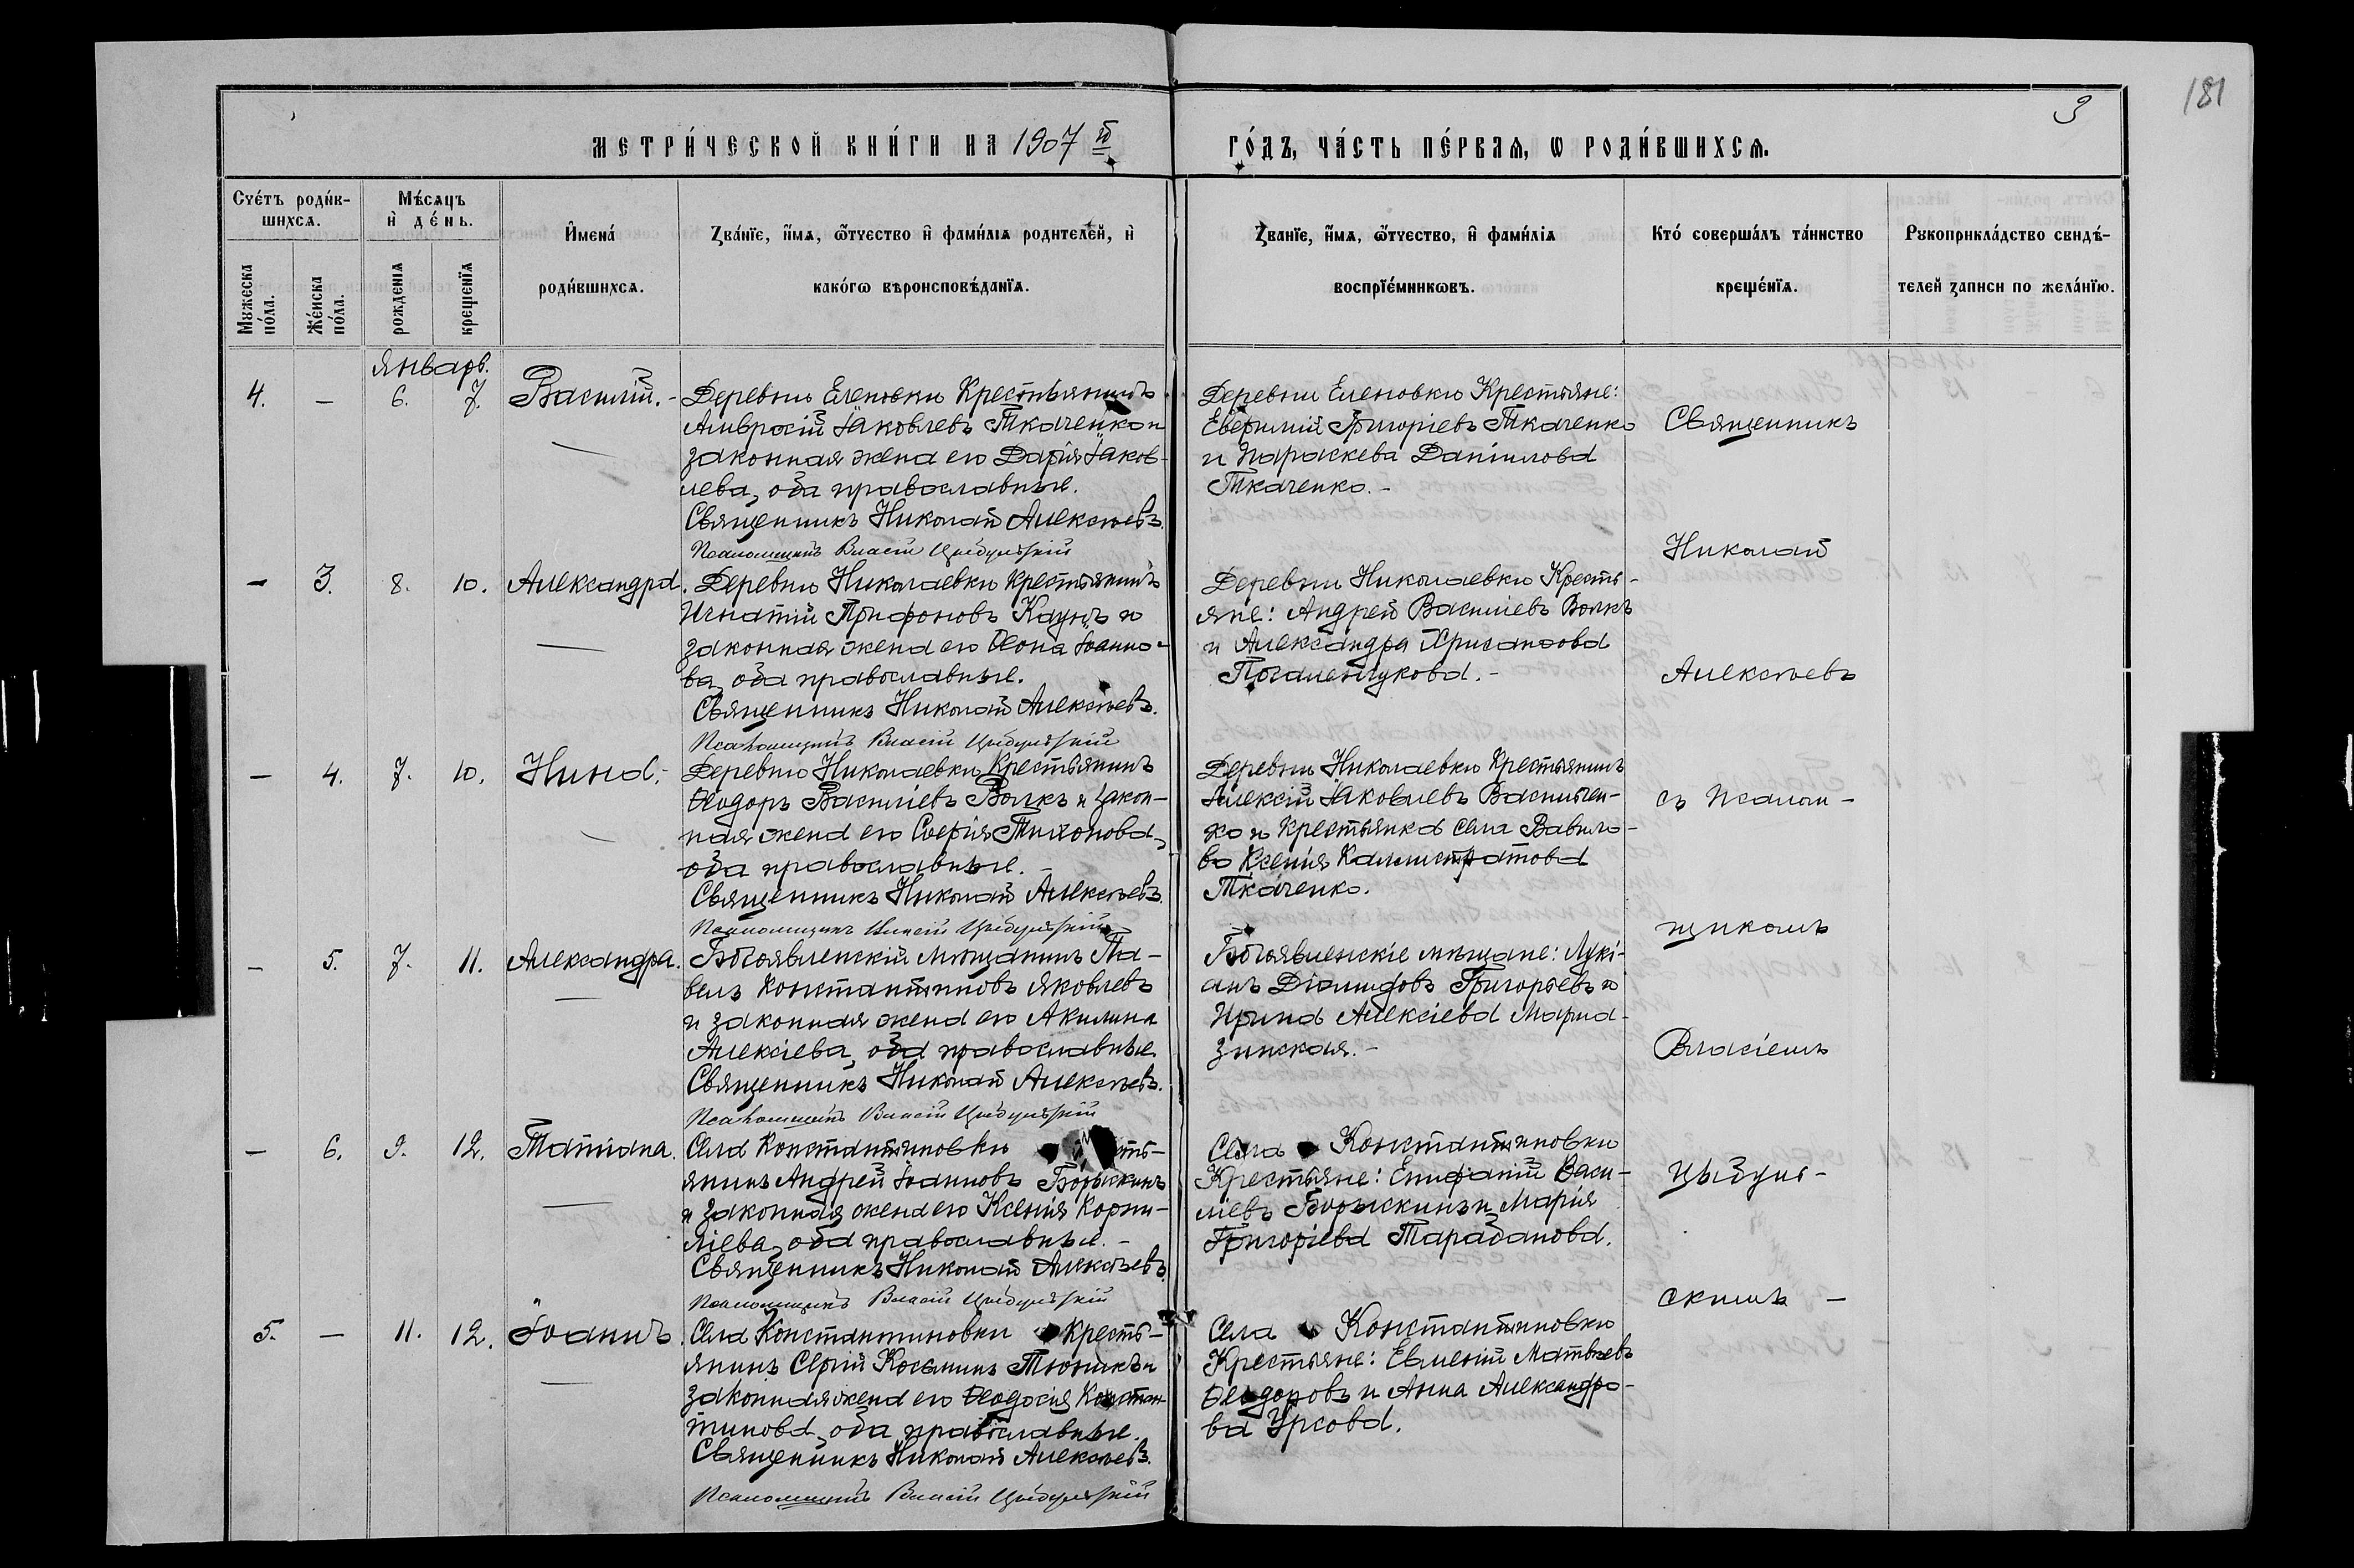 181
3
МЕТРИ́ЧЕСКОЙ КНИ́ГИ НА 1907 й
ГО́ДЪ, ЧА́СТЬ ПЕ́РВАЯ, Ѡ РОДИ́ВШИХСѦ.
Счéтъ роди́в-
шихсѧ.
Мужеска
по́ла.
Же́нска
по́ла.
Мѣ́сѧцъ
и҆ де́нь.
рожденїѧ
крещенїѧ
И҆мена́
роди́вшихсѧ.
Зва́нїе, и҆́мѧ, ѻ҆́тчество и҆ фами́лїѧ родителей, и҆
како́гѡ вѣроисповѣ́данїѧ.
Зва́нїе, и҆́мѧ, ѻ҆́тчество, и҆ фами́лїѧ
воспрїе́мникѡвъ.
Кто́ соверша́лъ та́инство
креще́нїѧ.
Рукоприкла́дство свидѣ́-
телей записи по жела́нїю.
Январь.
4. — 6. 7. Василій. -
Деревни Еленовки Крестьянинъ
Амвросій Іаковлевъ Ткаченко и
законная жена его Дарія Іаков-
лева, оба православные.
Священникъ Николай Алексѣевъ.
Псаломщикъ Власій Цыбульскій
Деревни Еленовки Крестьяне:
Евфимій Григоріевъ Ткаченко
и Параскева Даніилова
Ткаченко. -
— 3. 8. 10. Александра.
Деревни Николаевки Крестьянинъ
Игнатій Трифоновъ Кауръ и
законная жена его Ѳеона Іоанно-
ва, оба православные.
Священникъ Николай Алексѣевъ.
Псаломщикъ Власій Цыбульскій
Деревни Николаевки Кресть-
яне: Андрей Василіевъ Волкъ
и Александра Хрисанѳова
— 4. 7. 10. Нина. -
Деревни Николаевки Крестьянинъ
Ѳеодоръ Василіевъ Волкъ и закон-
ная жена его Софія Тихонова,
оба православные. -
Священникъ Николай Алексѣевъ.
Псаломщикъ Власій Цыбульскій
Деревни Николаевки Крестьянинъ
Алексій Іаковлевъ Василен-
ко и крестьянка села Вавило-
во Ксенія Каллистратова
Ткаченко.
— 5. 7. 11. Александра.
Богоявленскій мѣщанинъ Па-
велъ Константиновъ Яковлевъ
и законная жена его Акилина
Алексіева, оба православные
Священникъ Николай Алексѣевъ.
Псаломщикъ Власій Цыбульскій
Богоявленскіе мѣщане: Лукі-
анъ Діомидовъ Григорьевъ и
Ирина Алексіева Марша-
зинская. -
— 6. 9. 12. Татіана.
Села Константиновки
сть-
янинъ Андрей Іоанновъ Борыскинъ
и законная жена его Ксенія Корни-
ліева, оба православные. -
Священникъ Николай Алексѣевъ
Псаломщикъ Власій Цыбульскій
Села Константиновки
Крестьяне: Епифаній Васи-
ліевъ Борыскинъ и Марія
Григоріева Тарабанова.
5. — 11. 12. Іоаннъ.
Села Константиновки Кресть-
янинъ Сергій Косьминъ Тюникъ и
законная жена его Ѳеодосія Констан-
тинова, оба православные.
Священникъ Николай Алексѣевъ.
Псаломщикъ Власій Цыбульскій
Села Константиновки
Крестьяне: Евменій Матвѣевъ
Ѳеодоровъ и Анна Александро-
ва Урсова.
Священникъ
Николай
Алексѣевъ
съ псалом-
щикомъ
Власіемъ
Цыбуль-
скимъ -